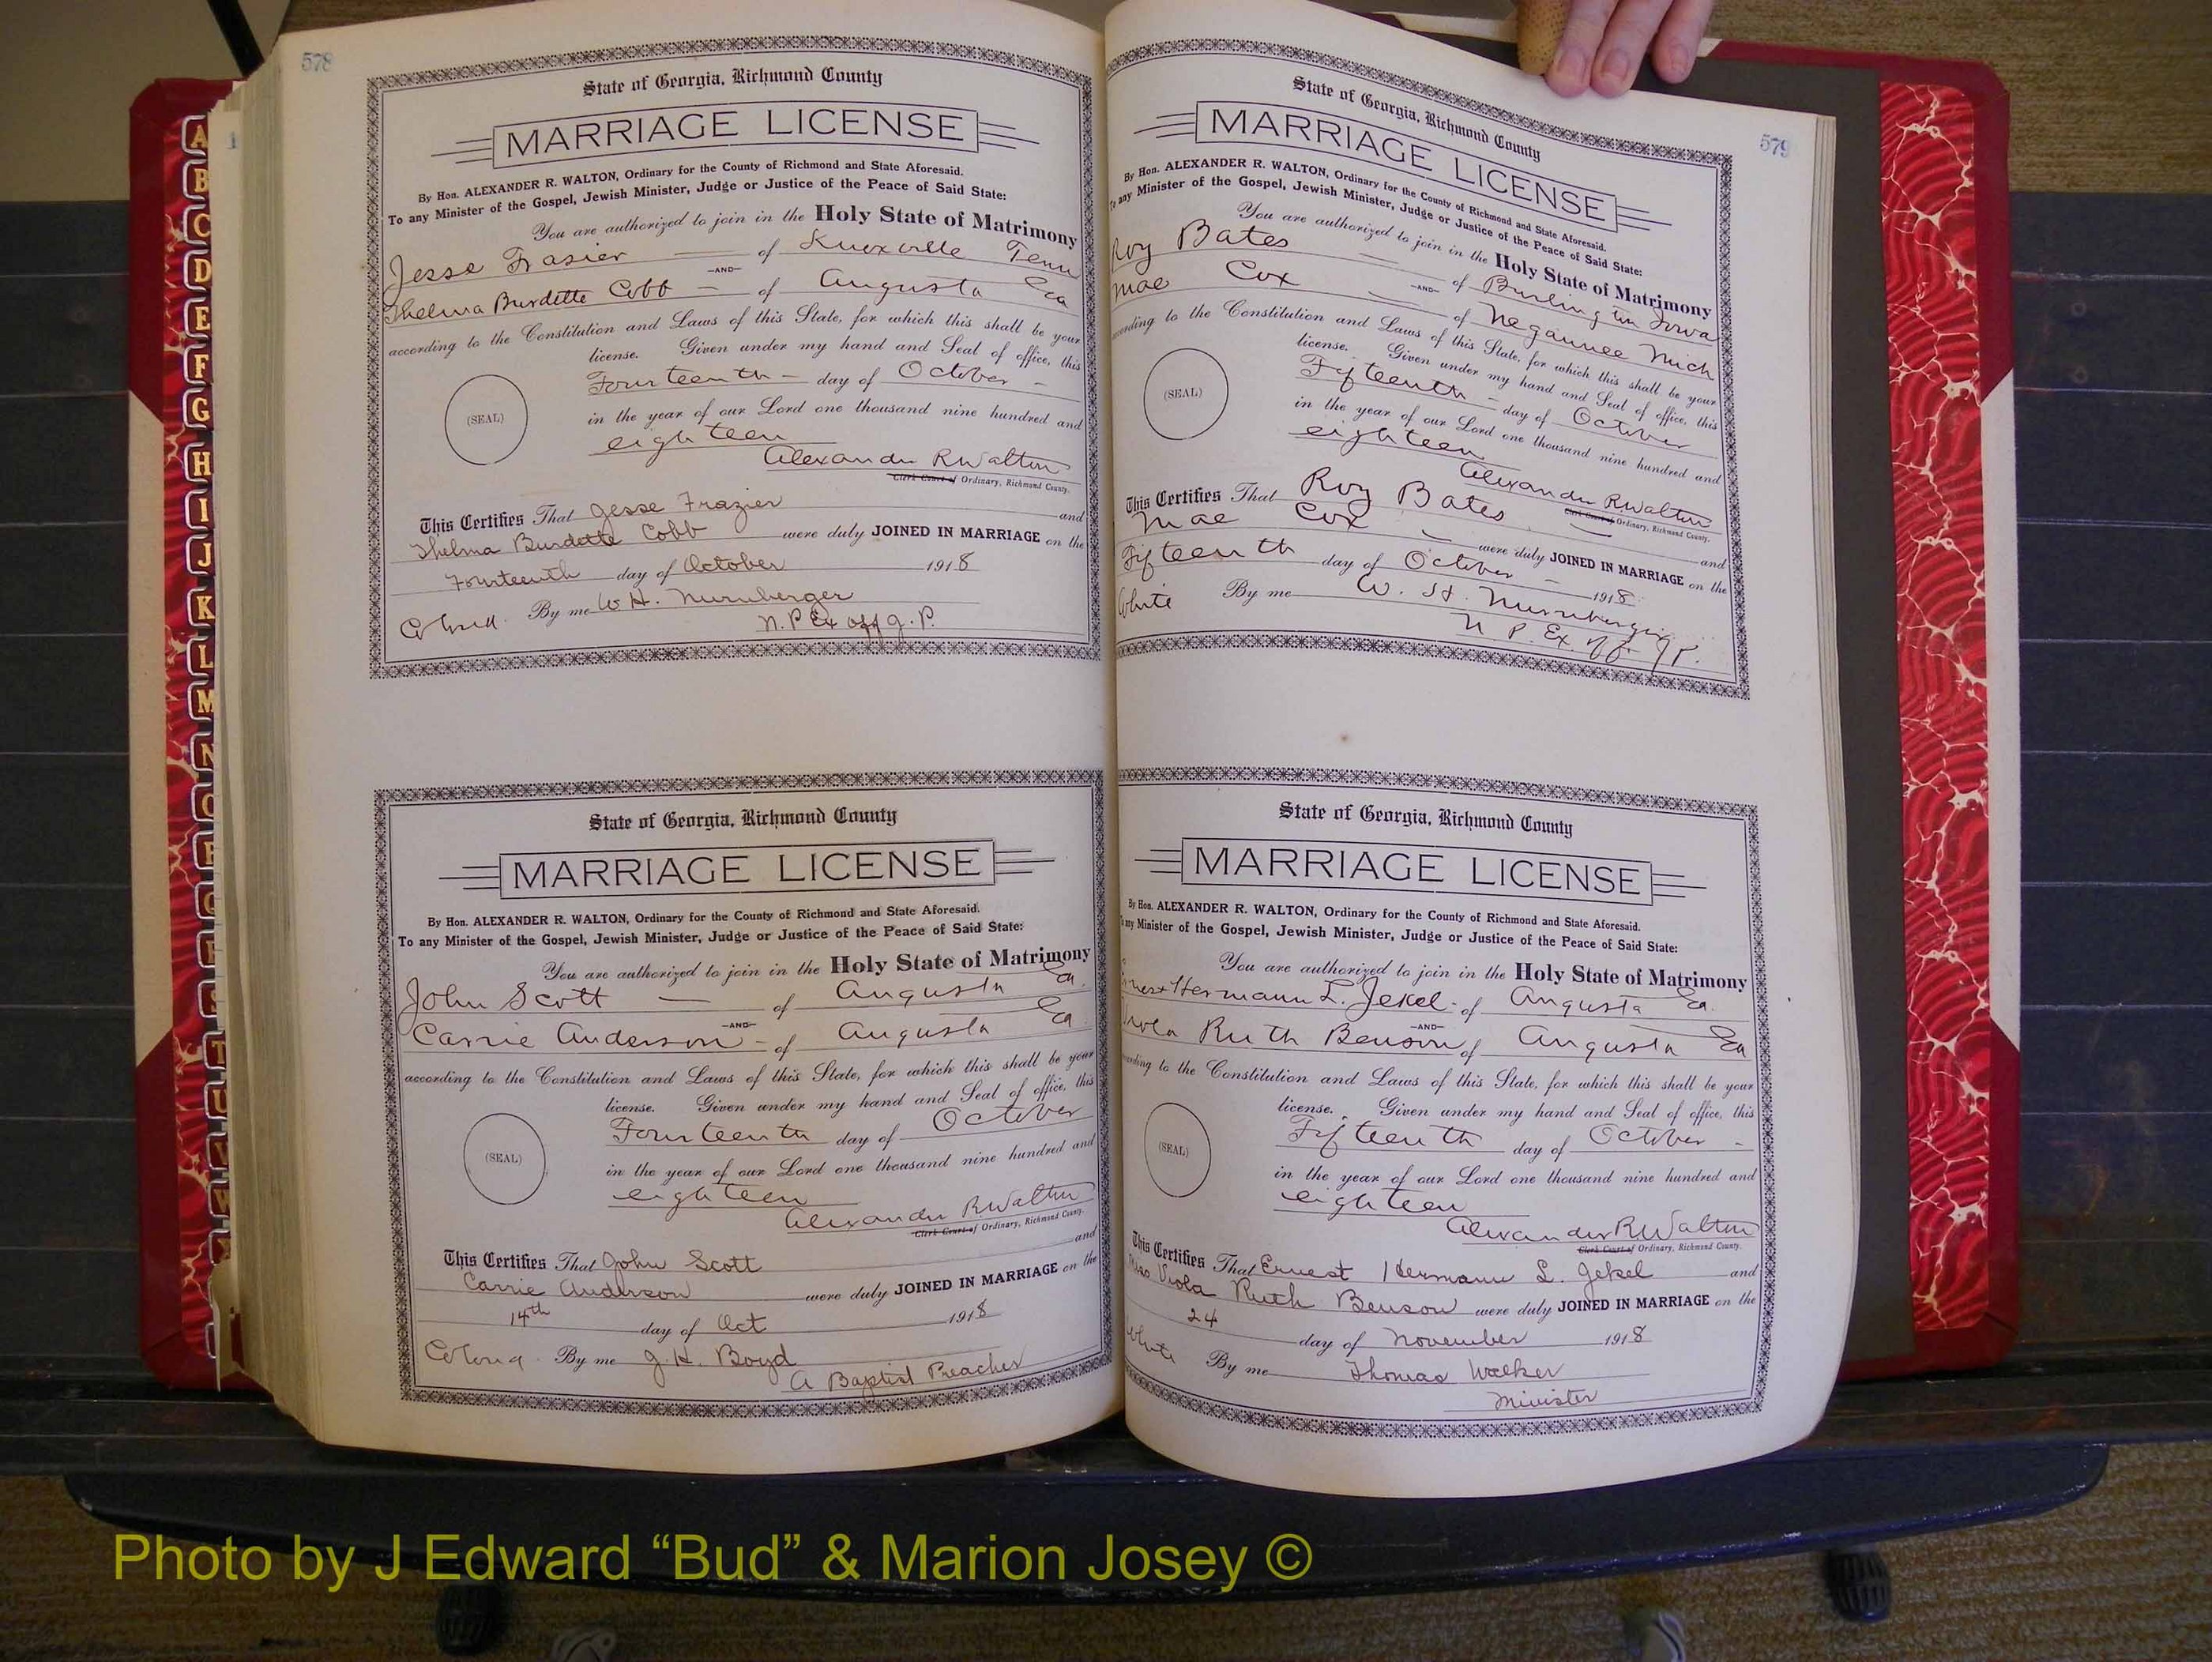 578
State of Georgia, Richmond County
MARRIAGE LICENSE
By Hon. ALEXANDER R. WALTON, Ordinary for the County of Richmond and State Aforesaid.
To any Minister of the Gospel, Jewish Minister, Judge or Justice of the Peace of Said State:
You are authorized to join in the Holy State of Matrimony
Jesse Frasier — of Knoxville Tenn
—AND—
Thelma Burdette Cobb — of Augusta Ga
according to the Constitution and Laws of this State, for which this shall be your
license. Given under my hand and Seal of office, this
Fourteenth — day of October —
(SEAL)
in the year of our Lord one thousand nine hundred and
eighteen
Alexander R Walton
Clerk Court of Ordinary, Richmond County.
This Certifies That Jesse Frazier and
Thelma Burdette Cobb were duly JOINED IN MARRIAGE on the
Fourteenth day of October 1918
Colored. By me W H. Nurnberger
N. P Ex off J. P.
State of Georgia, Richmond County
MARRIAGE LICENSE
By Hon. ALEXANDER R. WALTON, Ordinary for the County of Richmond and State Aforesaid.
To any Minister of the Gospel, Jewish Minister, Judge or Justice of the Peace of Said State:
You are authorized to join in the Holy State of Matrimony
John Scott — of Augusta Ga.
—AND—
Carrie Anderson — of Augusta Ga
according to the Constitution and Laws of this State, for which this shall be your
license. Given under my hand and Seal of office, this
Fourteenth day of October
(SEAL)
in the year of our Lord one thousand nine hundred and
eighteen
Alexander R Walton
Clerk Court of Ordinary, Richmond County.
This Certifies That John Scott and
Carrie Anderson were duly JOINED IN MARRIAGE on the
14th day of Oct 1918
Colored. By me J. H. Boyd
A Baptist Preacher
579
State of Georgia, Richmond County
MARRIAGE LICENSE
By Hon. ALEXANDER R. WALTON, Ordinary for the County of Richmond and State Aforesaid.
To any Minister of the Gospel, Jewish Minister, Judge or Justice of the Peace of Said State:
You are authorized to join in the Holy State of Matrimony
Roy Bates — of Burlington Iowa
—AND—
Mae Cox — of Negaunee Mich
according to the Constitution and Laws of this State, for which this shall be your
license. Given under my hand and Seal of office, this
Fifteenth — day of October
(SEAL)
in the year of our Lord one thousand nine hundred and
eighteen
Alexander R Walton
Clerk Court of Ordinary, Richmond County.
This Certifies That Roy Bates and
Mae Cox — were duly JOINED IN MARRIAGE on the
Fifteenth day of October — 1918
White By me W. H. Nurnberger
N. P. Ex. off. J P.
State of Georgia, Richmond County
MARRIAGE LICENSE
By Hon. ALEXANDER R. WALTON, Ordinary for the County of Richmond and State Aforesaid.
To any Minister of the Gospel, Jewish Minister, Judge or Justice of the Peace of Said State:
You are authorized to join in the Holy State of Matrimony
Ernest Hermann L. Jekel - of Augusta Ga.
—AND—
Viola Ruth Benson of Augusta Ga
according to the Constitution and Laws of this State, for which this shall be your
license. Given under my hand and Seal of office, this
Fifteenth day of October —
(SEAL)
in the year of our Lord one thousand nine hundred and
eighteen
Alexander R Walton
Clerk Court of Ordinary, Richmond County.
This Certifies That Ernest Hermann L. Jekel and
Miss Viola Ruth Benson were duly JOINED IN MARRIAGE on the
24 day of November 1918
White By me Thomas Walker
Minister
A
B
C
D
E
F
G
H
I
J
K
L
M
N
O
P
Q
R
S
T
U
V
W
Photo by J Edward “Bud” & Marion Josey ©